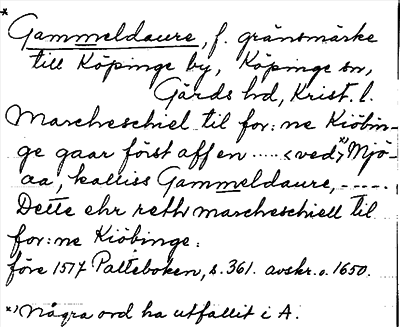 *
Gammeldaure, f. gränsmärke
till Köpinge by, Köpinge sn,
Gärds hd, Krist. l.
Marcheschiel til for:ne Kiöbin-
ge gaar först aff en ..... <ved>*) Mjö-
aa, kalliss Gammeldaure, -----
Dette ehr rett marcheschiell til
for:ne Kiöbinge:
före 1517 Palteboken, s. 361. avskr. o. 1650.
*) Några ord ha utfallit i A.